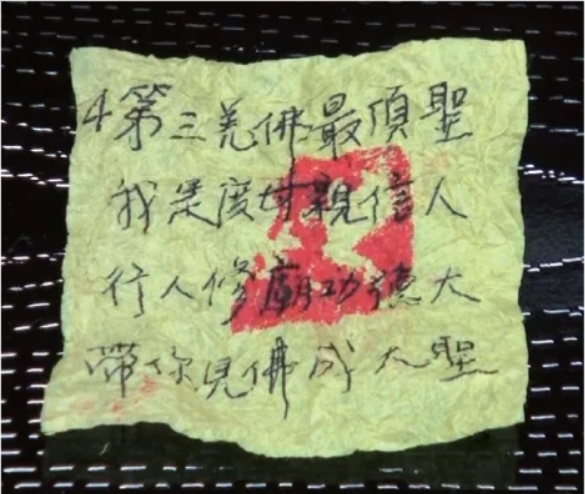 4第三羌佛最頂聖
我是度母親信人
行人修廟功德大
帶你見佛成大聖